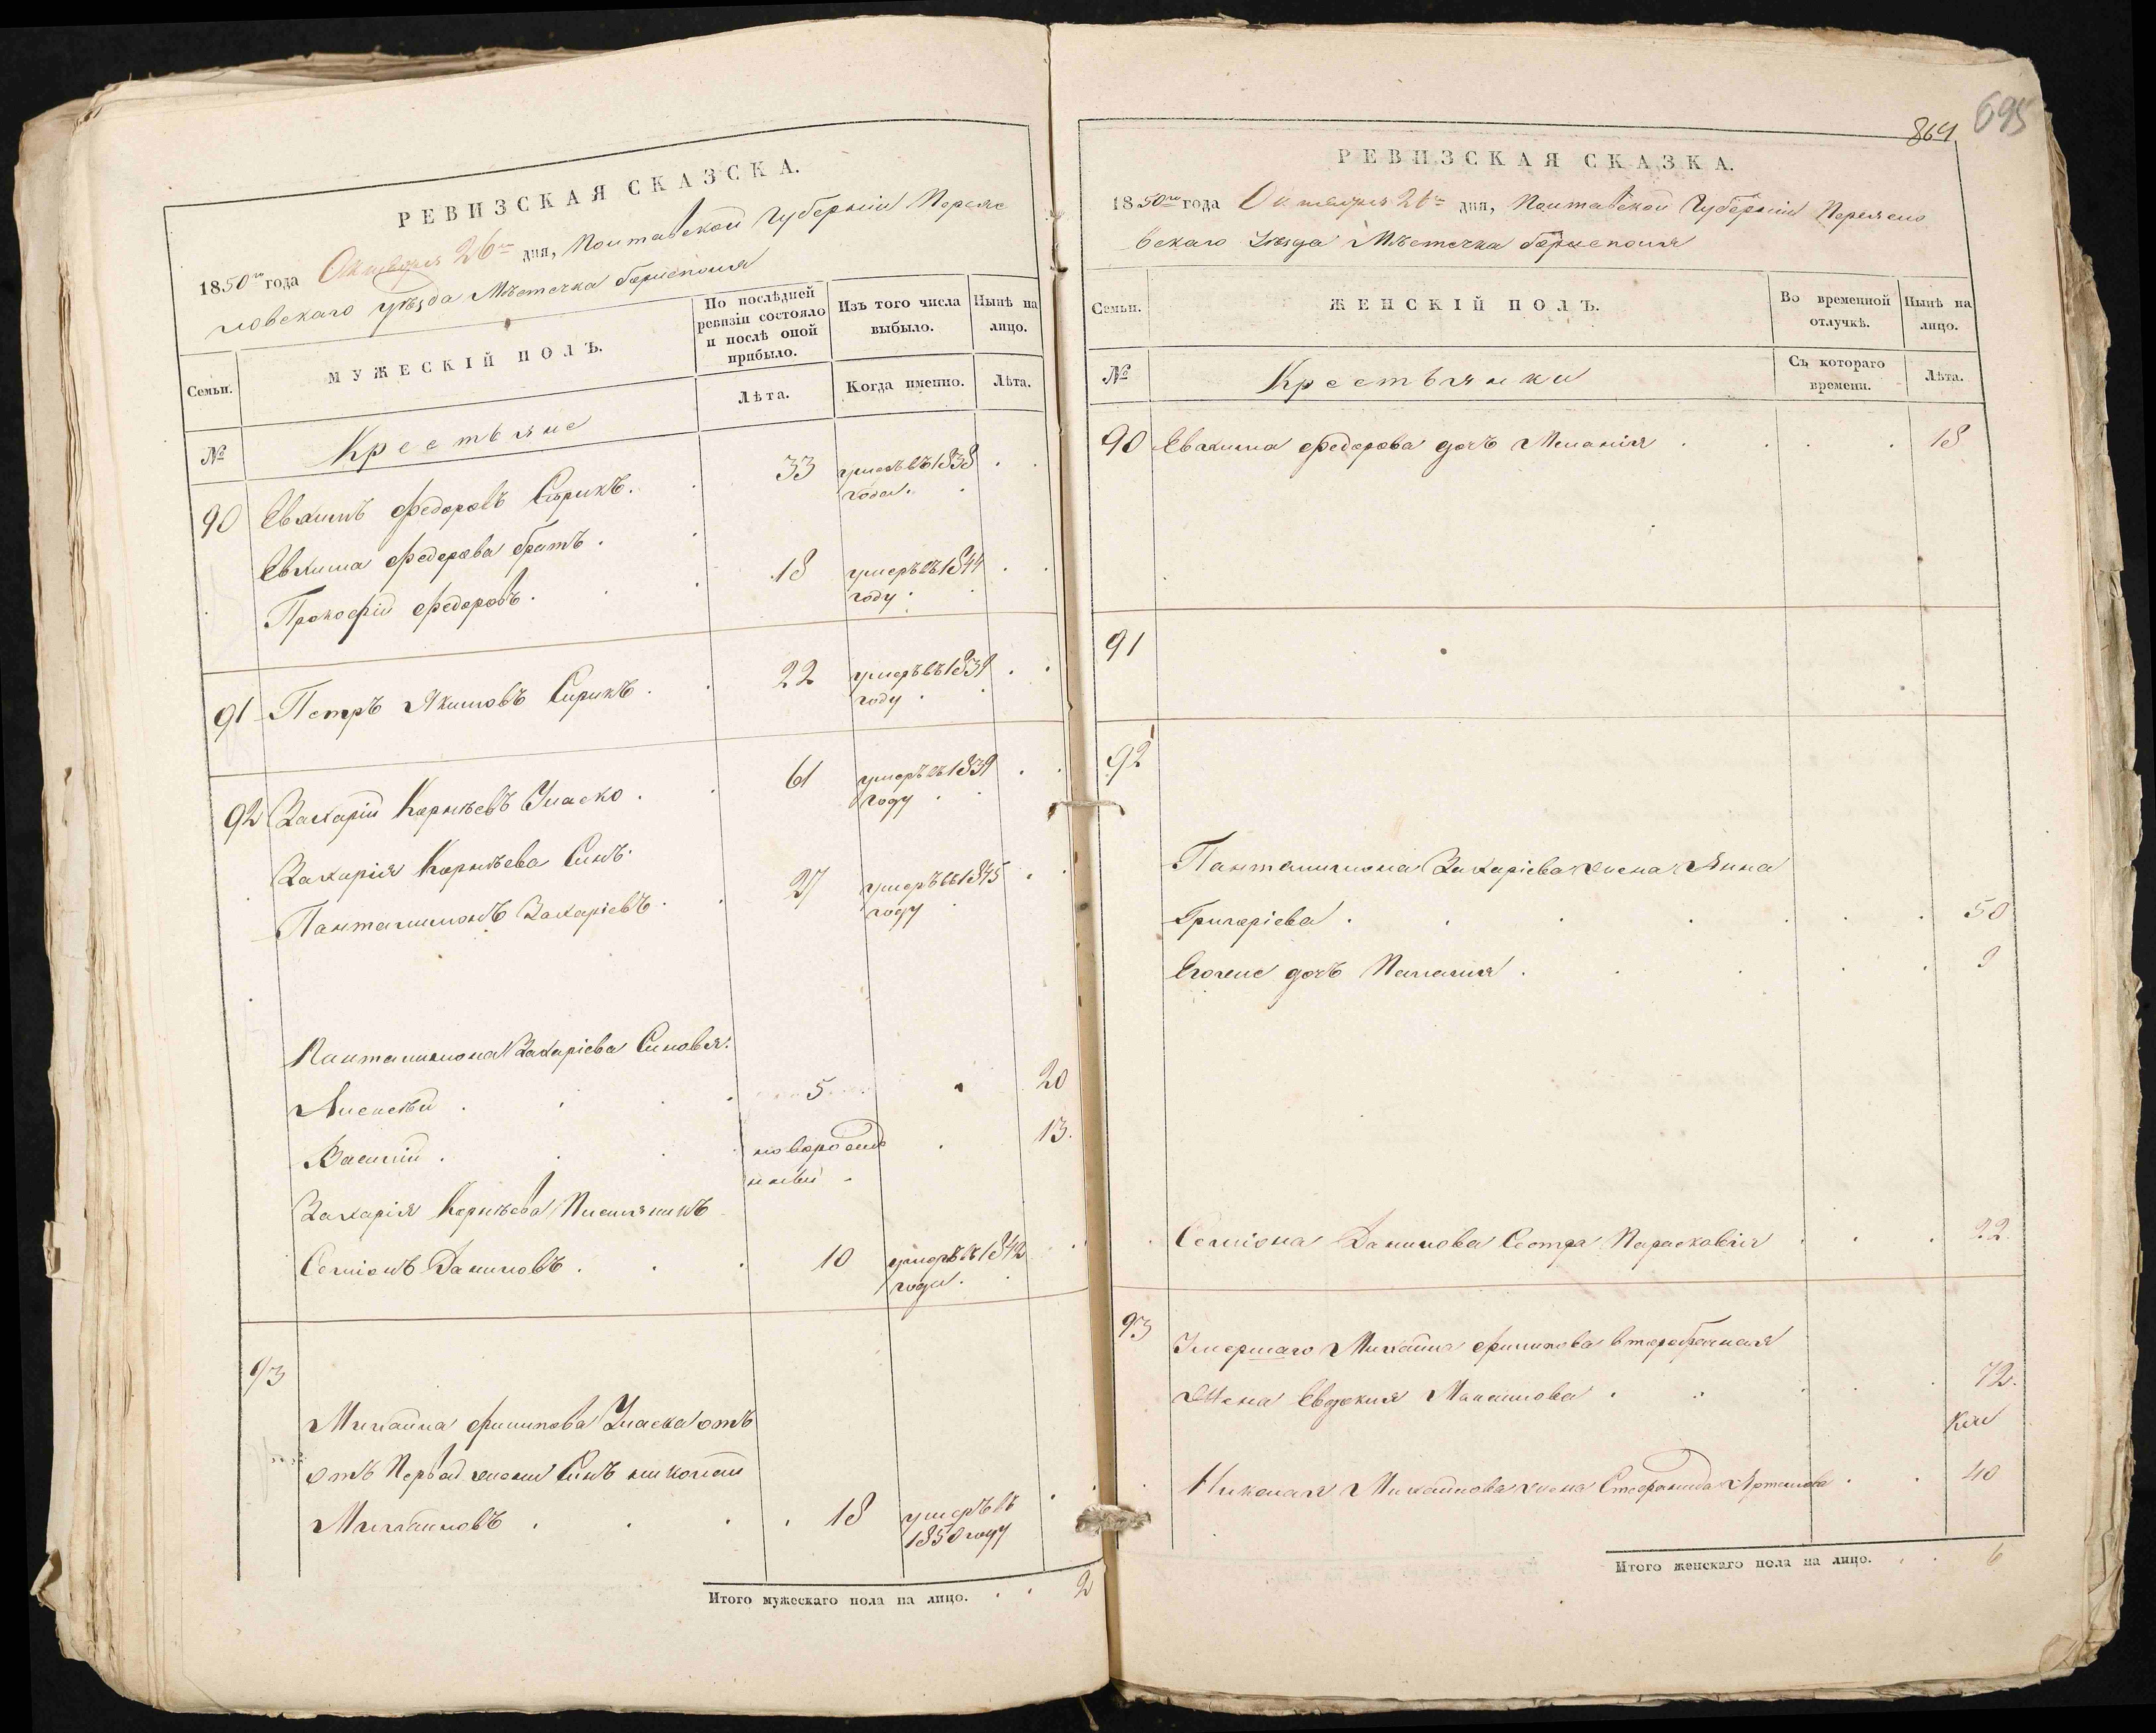 РЕВИЗСКАЯ СКАЗСКА.
1850го года Октября 26го дня, Полтавской Губерніи Переяс
ловскаго Уѣзда Мѣстечка Борисполя
Семьи.
МУЖЕСКІЙ ПОЛЪ.
По послѣдней ревизіи состояло и послѣ оной прибыло.
Изъ того числа выбыло.
Нынѣ на лицо.
№
Крестьяне
Лѣта.
Когда именно.
Лѣта.
90 Евхимъ Федоровъ Сирикъ. 33 умеръ въ 1838
года.
Евхима Федорова братъ.
Прокофій Федоровъ. 18 умеръ въ 1844
году
91 Петръ Якимовъ Сирикъ. 22 умеръ въ 1839
году
92 Захарій Корнѣевъ 61 умеръ въ 1839
году
Захарія Корнѣева Синъ
Пантелимонъ Захаріевъ. 27 умеръ въ 1845
году
Пантелимона Захаріева Синовья:
Алексѣй 5 20
Василій новорожд 13.
нный
Захарія Корнѣева Племянникъ
Семіонъ Даниловъ. 10 умеръ въ 1842
года.
93
Михайла Филипова отъ
отъ Первой жены Синъ Николай
Михайловъ 18 умеръ въ
1850 году
Итого мужескаго пола на лицо. 2
695
864
РЕВИЗСКАЯ СКАЗКА.
1850го года Октября 26го дня, Полтавской Губерніи Переясло
вскаго Уѣзда Мѣстечка Борисполя
Семьи.
ЖЕНСКІЙ ПОЛЪ.
Во временной отлучкѣ.
Нынѣ на лицо.
№
Крестьянки
Съ котораго времени.
Лѣта.
90 Евхима Федорова дочь Меланія 18
91
92
Пантелимона Захаріева жена Анна
Григоріева 50
Егоже дочь Пелагия 9
Семіона Данилова Сестра Парасковія 22
93 Умершаго Михайла Филипова второбрачная
Жена Евдокия 72.
Николая Михайлова жена Стефанида 40
Итого женскаго пола на лицо. 6